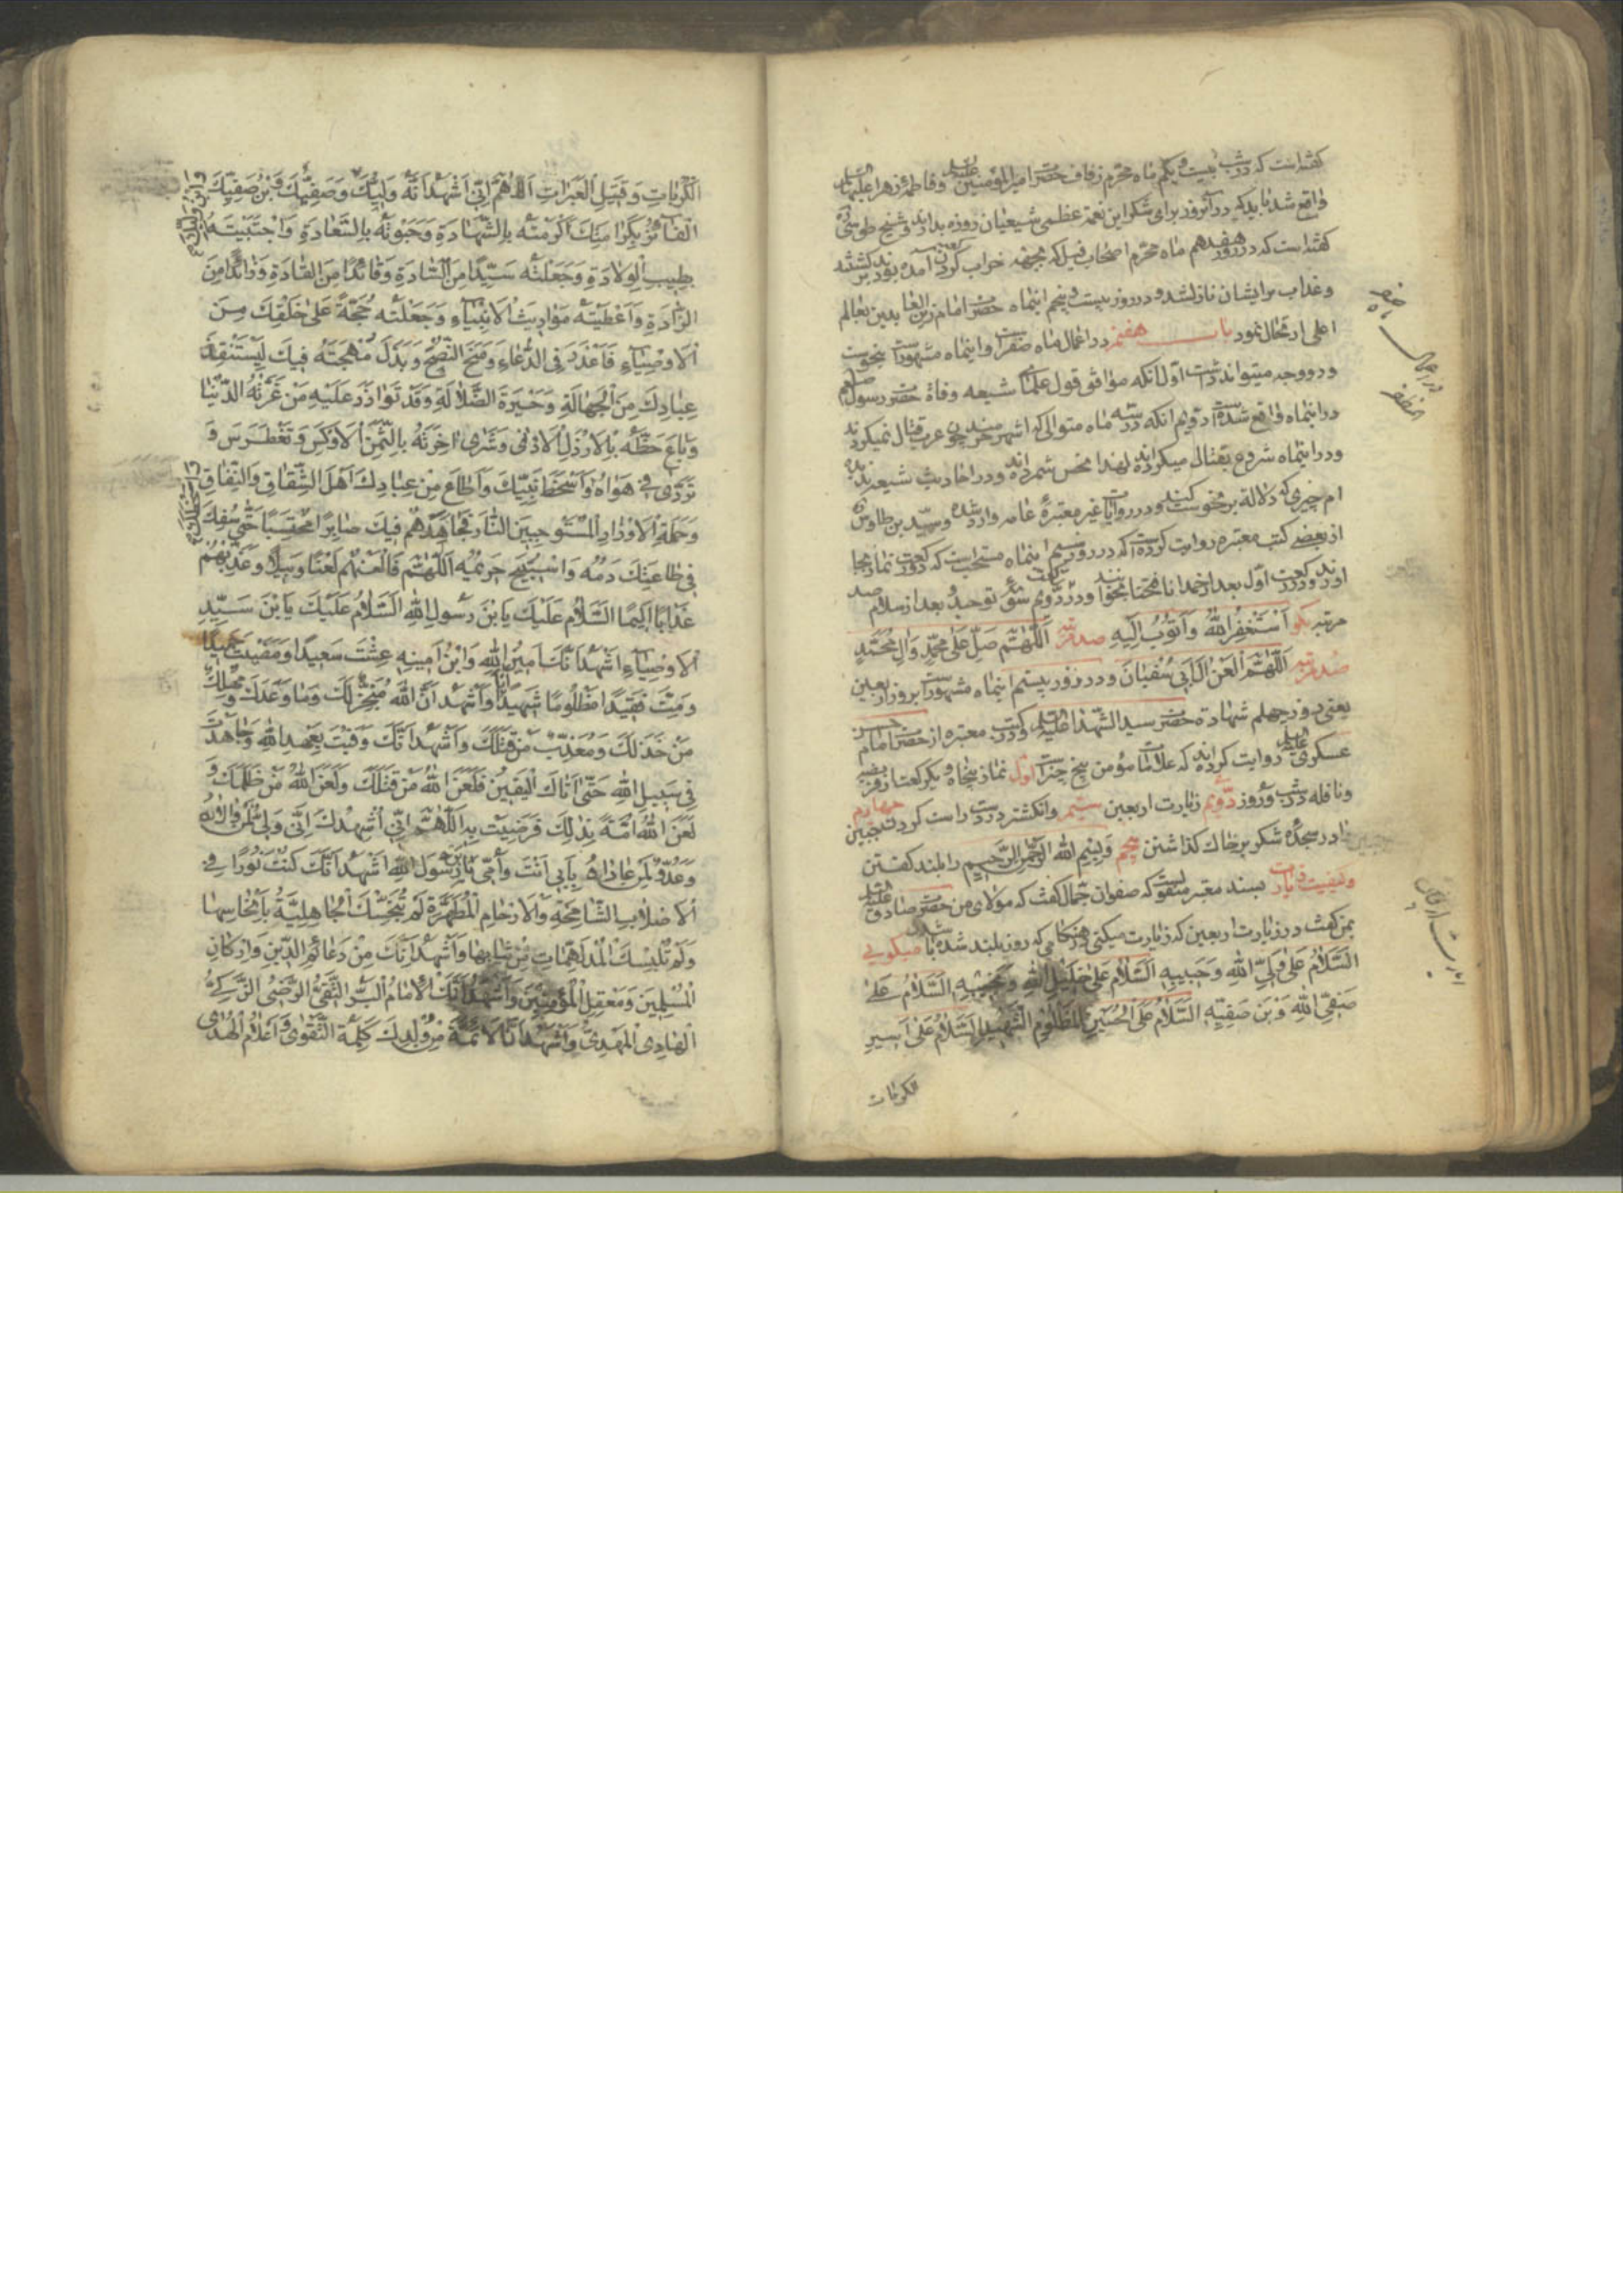 گفته است که در شب بیست و یکم ماه محرم زفاف حضرت امیر المؤمنین علیه السلم و فاطمهٔ زهرا علیها السلم
واقع شد باید که در آنروز برای شکر این نعمة عظمی شیعیان روزه بدارند و شیخ طوسی ره
گفته است که در روز هفدهم ماه محرم اصحاب فیل که بجهة خراب کردن آمده بودند
و عذاب برایشان نازل شد و در روز بیست و پنجم اینماه حضرت امام زین العابدین بعالم
اعلی ارتحال نمود باب هفتم در اعمال ماه صفر است و اینماه مشهور است بنحوست
و دو وجه میتواند داشت اول آنکه موافق قول علمای شیعه وفاة حضرت رسول صلعم
در اینماه واقع شده است دویم آنکه در سه ماه متوالی که اشهر حرمند چون عرب قتال نمیکردند
و در اینماه شروع بقتال میکرده اند لهذا نحس شمرده اند و در احادیث شیعه ندیده
ام چیزی که دلالة بر نحوست کند و در روایات غیر معتبرهٔ عامه وارد شده و سید بن طاوس ره
از بعضے کتب معتبره روایت کرده است که در روز سیم اینماه مستحبست که دو رکعت نماز بجا
اورند و در رکعت اول بعد از حمد انا فتحنا بخوانند و در رکعت دویم سورهٔ توحید و بعد از سلام صد
مرتبه بگو اَسْتَغْفِرُ اللّٰهَ وَ اَتُوبُ اِلَيْهِ صد مرتبه اَللّٰهُمَّ صَلِّ عَلیٰ مُحَمَّدٍ وَالِ مُحَمَّدٍ
صد مرتبه اَللّٰهُمَّ الْعَنْ الَ اَبِی سُفْیَانَ و در روز بیستم اینماه مشهور است بروز اربعین
یعنی روز چهلم شهادة حضرت سید الشهدا علیه السلم و در کتب معتبره از حضرت امام حسن
عسکری علیه السلم روایت کرده اند که علامات مؤمن پنج چیز است اول نماز پنجاه و یکرکعت از فریضه
و نافله در شب و روز دویم زیارت اربعین سیم و انگشتر در دست راست کردن چهارم جبین
را در سجدهٔ شکر بر خاک گذاشتن پنجم وَ بِسْمِ اللّٰهِ الرَّحْمٰنِ الرَّحِيمِ را بلند گفتن
و کیفیت زیارت بسند معتبر منقولست که صفوان جمال گفت که مولای من حضرت صادق علیه السلم
بمن گفت در زیارت اربعین که زیارت میکنی در هنگامی که روز بلند شده باشد و میگویی
اَلسَّلَامُ عَلیٰ وَلِیِّ اللّٰهِ وَ حَبِیبِهِ اَلسَّلَامُ عَلیٰ خَلِیلِ اللّٰهِ وَ نَجِیبِهِ اَلسَّلَامُ عَلیٰ
صَفِیِّ اللّٰهِ وَ بْنِ صَفِیِّهِ اَلسَّلَامُ عَلَی الْحُسَیْنِ الْمَظْلُومِ الشَّهِیدِ اَلسَّلَامُ عَلیٰ اَسِیرِ
الکربات
الْكُرُبَاتِ وَ قَتِیلِ الْعَبَرَاتِ اَللّٰهُمَّ اِنِّی اَشْهَدُ اَنَّهُ وَلِیُّكَ وَ صَفِیُّكَ وَ بْنُ صَفِیِّكَ
وَ ابْنُ وَلِیِّكَ
الْفَائِزُ بِكَرَامَتِكَ اَكْرَمْتَهُ بِالشَّهَادَةِ وَ حَبَوْتَهُ بِالسَّعَادَةِ وَ اجْتَبَیْتَهُ
بِطِیبِ الْوِلَادَةِ وَ جَعَلْتَهُ سَیِّدًا مِنَ السَّادَةِ وَ قَائِدًا مِنَ الْقَادَةِ وَ ذَائِدًا مِنَ
الذَّادَةِ وَ اَعْطَیْتَهُ مَوَارِیثَ الْاَنْبِیَاءِ وَ جَعَلْتَهُ حُجَّةً عَلیٰ خَلْقِكَ مِنَ
الْاَوْصِیَاءِ فَاَعْذَرَ فِی الدُّعَاءِ وَ مَنَحَ النُّصْحَ وَ بَذَلَ مُهْجَتَهُ فِیكَ لِیَسْتَنْقِذَ
عِبَادَكَ مِنَ الْجَهَالَةِ وَ حَیْرَةِ الضَّلَالَةِ وَ قَدْ تَوَازَرَ عَلَیْهِ مَنْ غَرَّتْهُ الدُّنْیَا
وَ بَاعَ حَظَّهُ بِالْاَرْذَلِ الْاَدْنیٰ وَ شَریٰ اٰخِرَتَهُ بِالثَّمَنِ الْاَوْكَسِ وَ تَغَطْرَسَ وَ
تَرَدّیٰ فِی هَوَاهُ وَ اَسْخَطَ نَبِیَّكَ وَ اَطَاعَ مِنْ عِبَادِكَ اَهْلَ الشِّقَاقِ وَ النِّفَاقِ
وَ اَسْخَطَكَ
وَ حَمَلَةَ الْاَوْزَارِ الْمُسْتَوْجِبِینَ النَّارَ فَجَاهَدَهُمْ فِیكَ صَابِرًا مُحْتَسِبًا حَتّیٰ سُفِكَ
فِی طَاعَتِكَ دَمُهُ وَ اسْتُبِیحَ حَرِیمُهُ اَللّٰهُمَّ فَالْعَنْهُمْ لَعْنًا وَبِیلًا وَ عَذِّبْهُمْ
عَذَابًا اَلِیمًا اَلسَّلَامُ عَلَیْكَ یَا بْنَ رَسُولِ اللّٰهِ اَلسَّلَامُ عَلَیْكَ یَا بْنَ سَیِّدِ
الْاَوْصِیَاءِ اَشْهَدُ اَنَّكَ اَمِینُ اللّٰهِ وَ ابْنُ اَمِینِهِ عِشْتَ سَعِیدًا وَ مَضَیْتَ حَمِیدًا
وَ مِتَّ فَقِیدًا مَظْلُومًا شَهِیدًا وَ اَشْهَدُ اَنَّ اللّٰهَ مُنْجِزٌ لَكَ وَ مَا وَعَدَكَ وَ مُهْلِكٌ
مَنْ خَذَلَكَ وَ مُعَذِّبٌ مَنْ قَتَلَكَ وَ اَشْهَدُ اَنَّكَ وَفَیْتَ بِعَهْدِ اللّٰهِ وَ جَاهَدْتَ
فِی سَبِیلِ اللّٰهِ حَتّیٰ اَتَاكَ الْیَقِینُ فَلَعَنَ اللّٰهُ مَنْ قَتَلَكَ وَ لَعَنَ اللّٰهُ مَنْ ظَلَمَكَ وَ
لَعَنَ اللّٰهُ اُمَّةً بِذٰلِكَ فَرَضِیَتْ بِهِ اَللّٰهُمَّ اِنِّی اُشْهِدُكَ اِنِّی وَلِیٌّ لِمَنْ وَالَاهُ
وَ عَدُوٌّ لِمَنْ عَادَاهُ بِاَبِی اَنْتَ وَ اُمِّی یَا بْنَ رَسُولِ اللّٰهِ اَشْهَدُ اَنَّكَ كُنْتَ نُورًا فِی
الْاَصْلَابِ الشَّامِخَةِ وَ الْاَرْحَامِ الْمُطَهَّرَةِ لَمْ تُنَجِّسْكَ الْجَاهِلِیَّةُ بِاَنْجَاسِهَا
وَ لَمْ تُلْبِسْكَ الْمُدْلَهِمَّاتِ مِنْ ثِیَابِهَا وَ اَشْهَدُ اَنَّكَ مِنْ دَعَائِمِ الدِّینِ وَ اَرْكَانِ
الْمُسْلِمِینَ وَ مَعْقِلِ الْمُؤْمِنِینَ وَ اَشْهَدُ اَنَّكَ الْاِمَامُ الْبَرُّ التَّقِیُّ الرَّضِیُّ الزَّكِیُّ
الْهَادِی الْمَهْدِیُّ وَ اَشْهَدُ اَنَّ الْاَئِمَّةَ مِنْ وُلْدِكَ كَلِمَةُ التَّقْویٰ وَ اَعْلَامُ الْهُدیٰ